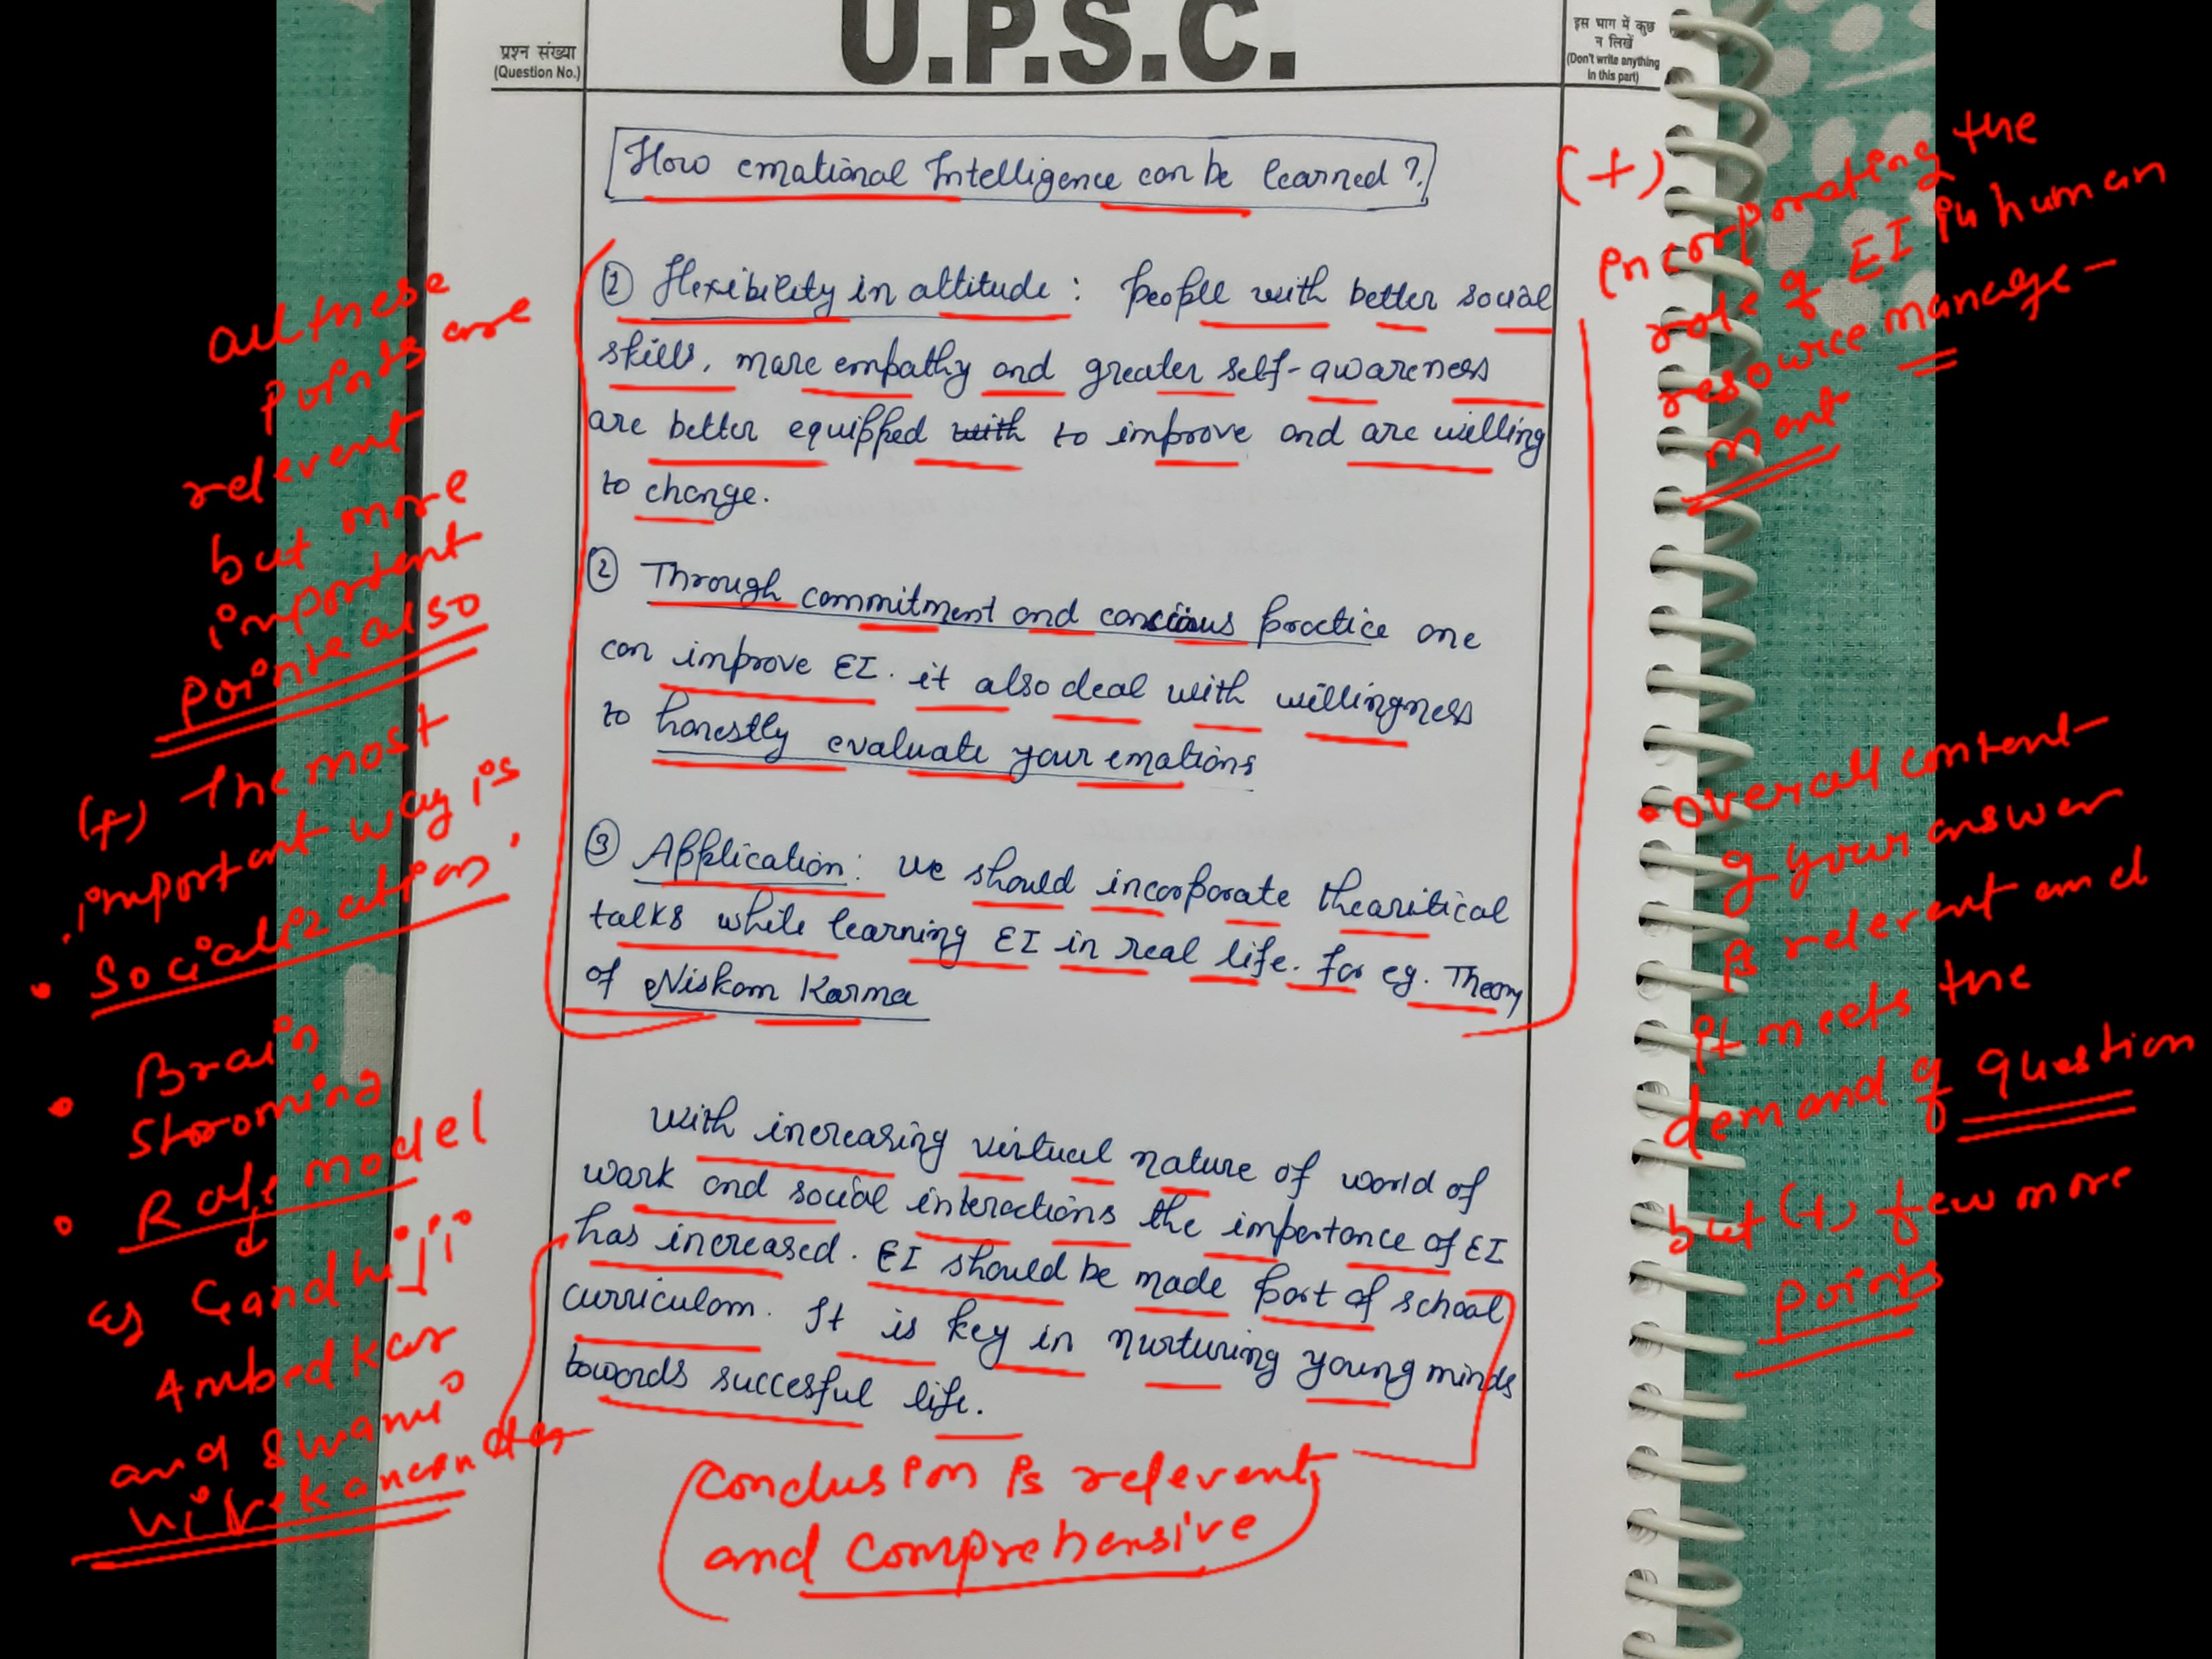 U.P.S.C.
प्रश्न संख्या
(Question No.)
इस भाग में कुछ
न लिखें
(Don't write anything
in this part)
How emotional Intelligence can be learned ?
① Flexibility in attitude : People with better social
skills, more empathy and greater self-awareness
are better equipped with to improve and are willing
to change.
② Through commitment and conscious practice one
can improve EI. it also deal with willingness
to honestly evaluate your emotions
③ Application: we should incorporate thearitical
talks while learning EI in real life. for eg. Theory
of Niskam Karma
With increasing virtual nature of world of
work and social interactions the importance of EI
has increased. EI should be made part of school
curriculam. It is key in nurturing young minds
towards succesful life.
Conclusion is relevent
and Comprehensive
all these
points are
relevent
but more
importent
points also
(+) The most
important way is
• Socialization.
• Brain
Storoming
• Role model
eg Gandhiji
Ambedkar
and Swami
vivekanandas
(+)
incorporating the
role of EI in human
resource manage-
ment
• Overall content-
of your answer
is relevent and
it meets the
demand of question
but (+) few more
points